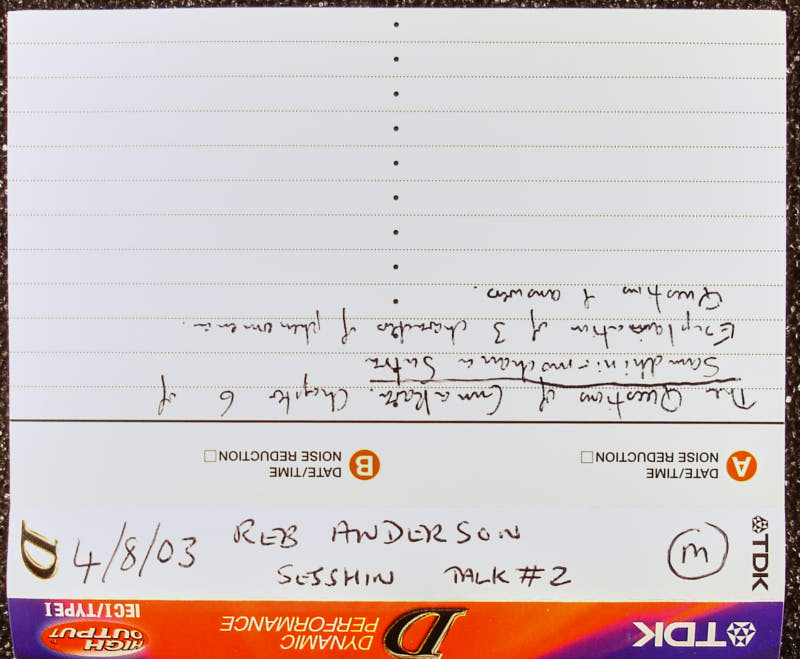 4/8/03 REB ANDERSON
SESSHIN TALK #2
M
TDK
D
TDK
D DYNAMIC
PERFORMANCE
HIGH
OUTPUT
IECI/TYPEI
A DATE/TIME
NOISE REDUCTION
B DATE/TIME
NOISE REDUCTION
The Questions of Gunakara. Chapter 6 of
Samdhinirmochana Sutra
Explaination of 3 characters of phenomena.
Question & answers.